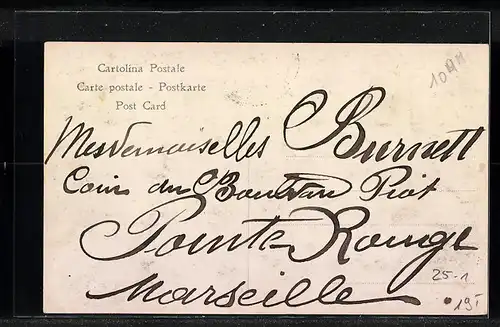 Cartolina Postale
Carte postale - Postkarte
Post Card
Mesdemoiselles Burnett
Coin du Boulevard Piot
Pointe Rouge
Marseille
25-1